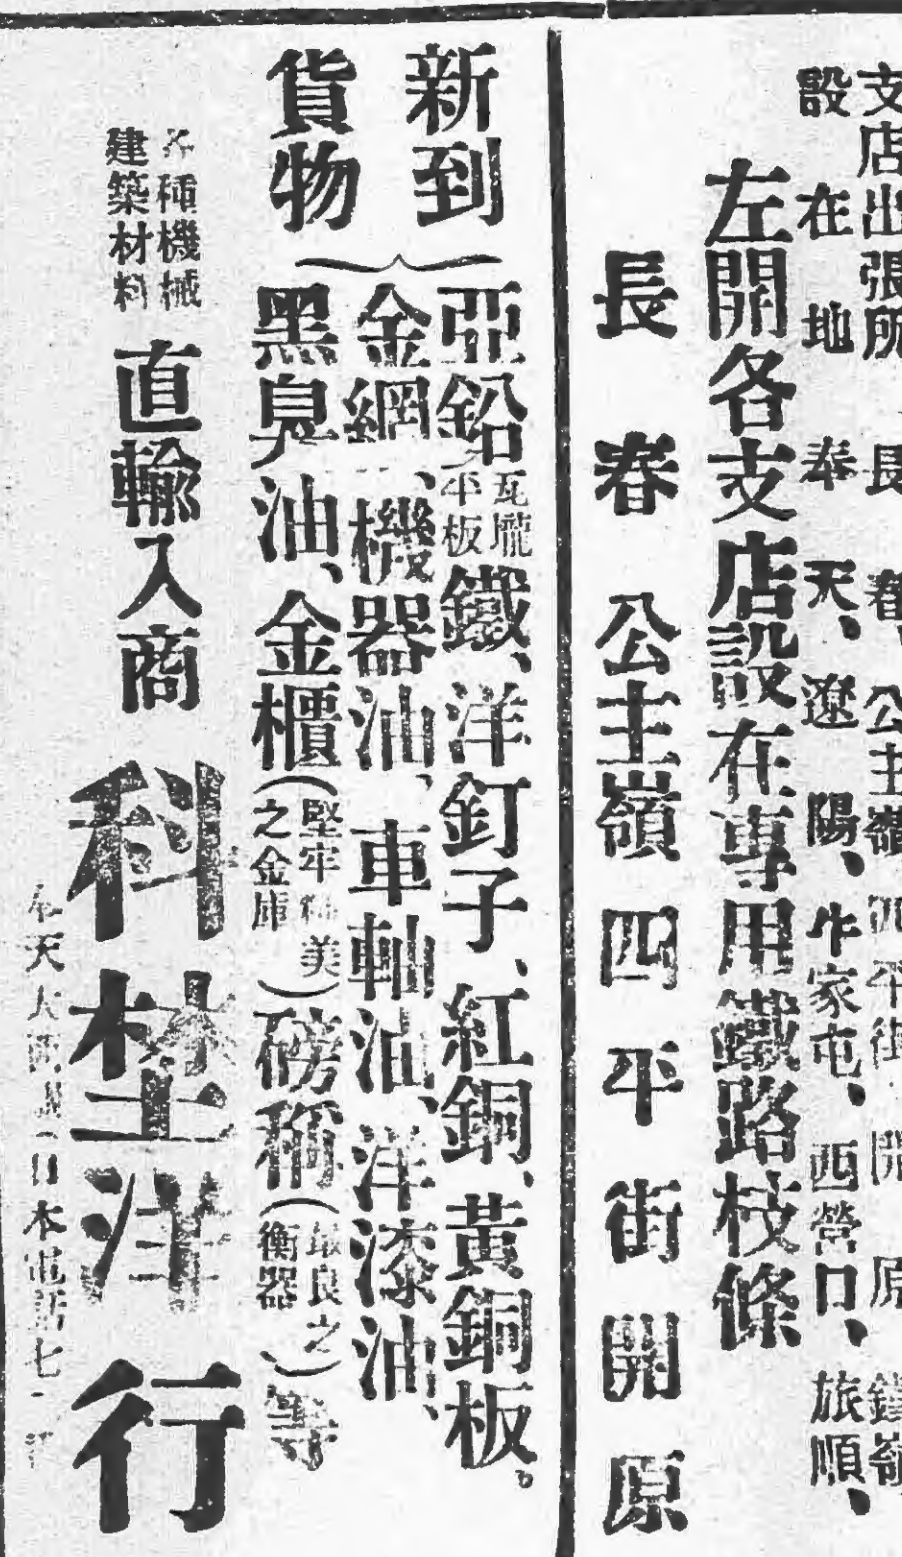 支店出張所 長春、公主嶺 四平街 開原 鐵嶺
設在地 奉天、遼陽、牛家屯、西營口、旅順、
左開各支店設在專用鐵路枝條
長春 公主嶺 四平街 開原
新到
貨物
亞鉛瓦瓏平板鐵、洋釘子、紅銅、黃銅板。
金網、機器油、車軸油、洋漆油、
黑臭油、金櫃(堅牢 美之金庫)磅稱(最良之衡器)等
各種機械
建築材料
直輸入商
科埜洋行
奉天大西 日本電話七